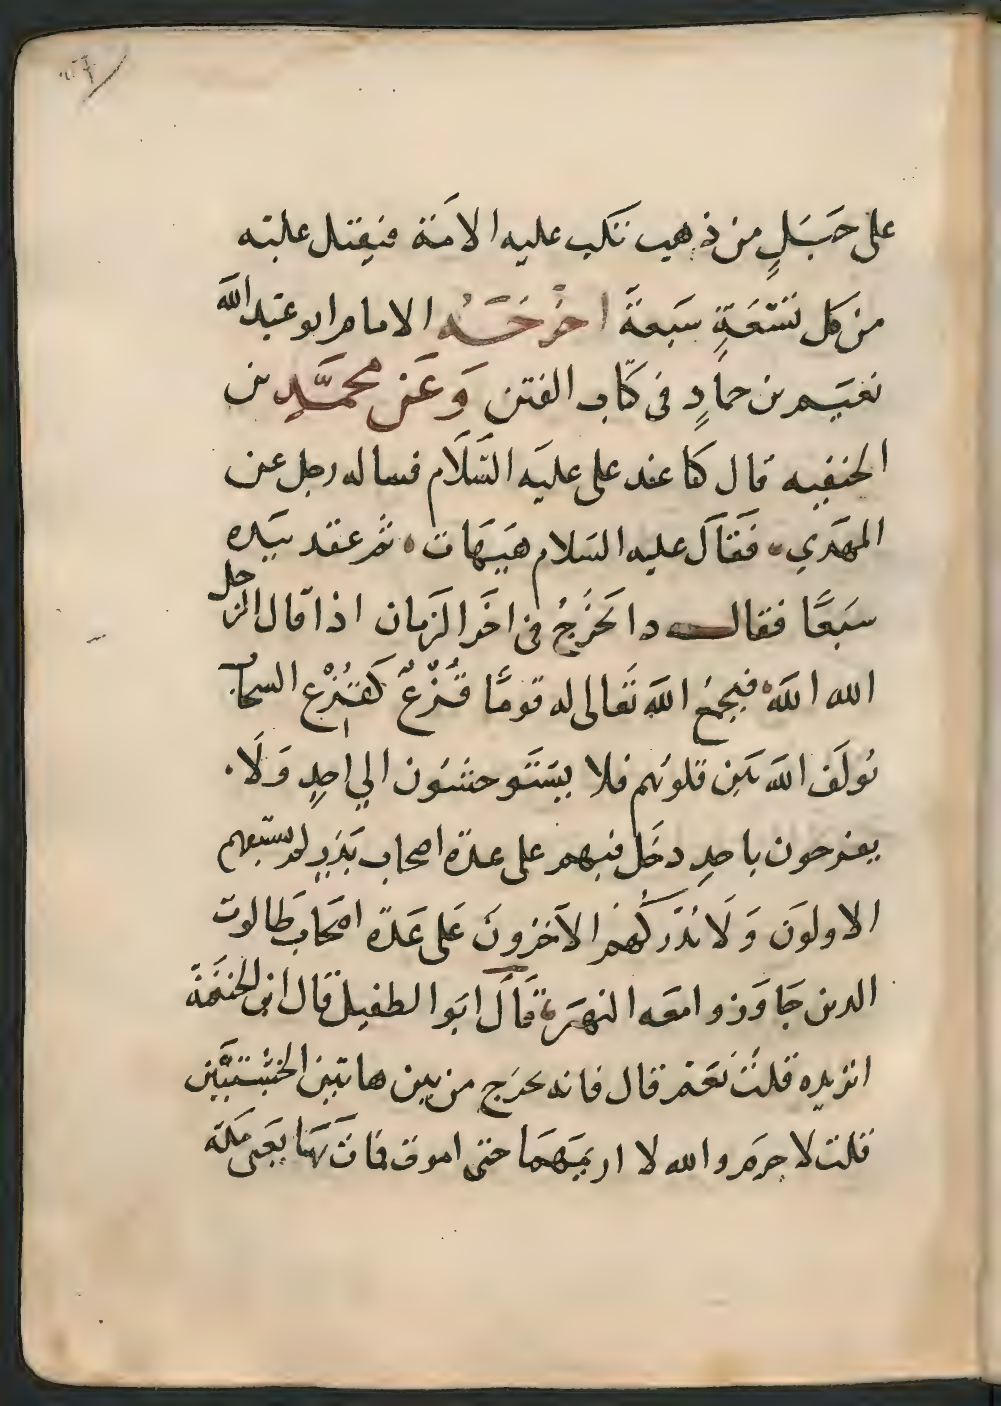 على جَبَلٍ من ذهب تكب عليه الامَة فيقتل عليه
من كل تسعَةٍ سَبعةَ اخرَجَهُ الامام ابو عبد الله
نعيَم بن حمادٍ في كتاب الفتن وَعَن محمَّدِ بن
الحنفيه قال كنا عند على عليَه السَّلَام فساله رجل عن
المهَدي فَقاَلَ عليه السَلام هَيَهَات ثم عقد بيَده
سَبعًا فقال دا يَخرَجُ في اخَر الزَمان اذا قال الرَجل
الله الله فيجمعُ اللهَ تعَالى له قومًا قُزُعٌ كَقُزُع السحابُ
يُولَف اللهَ بَين قلوبُهم فلا يسَتَوحشوُن الي احدٍ وَلَا
يفرحون باحدٍ دخَل فيهم على عدة اصحاب بَدَرٍ لم يسبَقهم
الاولوَن وَلَا يُدَركُهم الآخرونَ عَلى عَدّة اصحَاب طَالوت
الدين جَاوَزوا معَه النهَرَ قاَلَ ابَوا الطفيل قال ابن الحنفَية
اتريده قلتُ نعَم قال فانه يخرَج من بين هاتين الخشبَتَين
قلت لا جرَم والله لا اريَمَهمَا حتى اموت فماتَ بهَا يَعَني مَكة